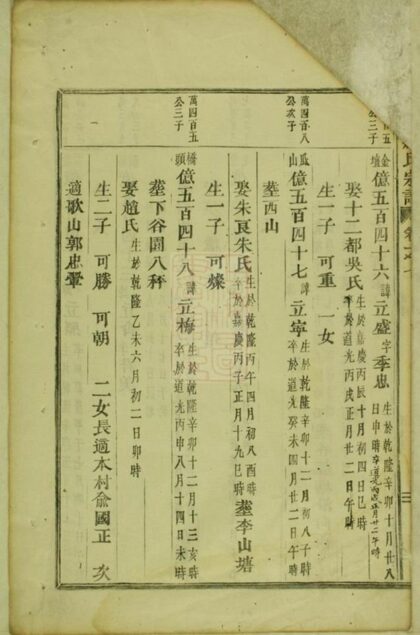 氏宗譜
億五百四十六諱立盛字季忠生於乾隆辛卯十月廿八
日申時卒道光丙戌正月廿二午時
娶十二都吳氏生於嘉慶丙辰十月初四日巳時
卒於道光丙戌正月廿二日午時
生一子 可重 一女
萬四百八
公次子
瓜山
億五百四十七諱立寧生於乾隆辛卯十二月初八子時
卒於道光癸未四月廿二日午時
塟西山
娶朱㫐朱氏生於乾隆丙午四月初八酉時
卒於嘉慶丙子正月十九巳時塟李山塘
生一子 可燦
萬四百五
公三子
橋頭
億五百四十八諱立梅生於乾隆辛卯十二月十三亥時
卒於道光丙申八月十四日未時
塟下谷園八秤
娶趙氏生於乾隆乙未六月初二日卯時
生二子 可勝 可朝 二女長適本村俞國正 次
適歌山郭忠鞏